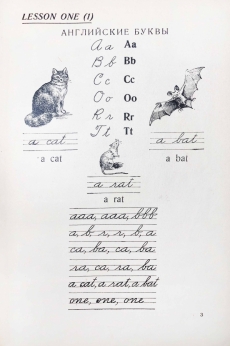 LESSON ONE (1)
АНГЛИЙСКИЕ БУКВЫ
Aa Aa
Bb Bb
Cc Cc
Oo Oo
Rr Rr
Tt Tt
a cat
a cat
a bat
a bat
a rat
a rat
aaa, aaa, bbb
a, b, r, r, b, a
ca, ba, ca, ba
ra, ca, ra, ba
a cat, a rat, a bat
one, one, one
3